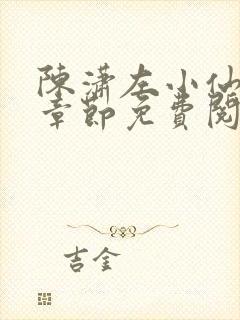 陳瀟左小仙
章節免費閱
吉金